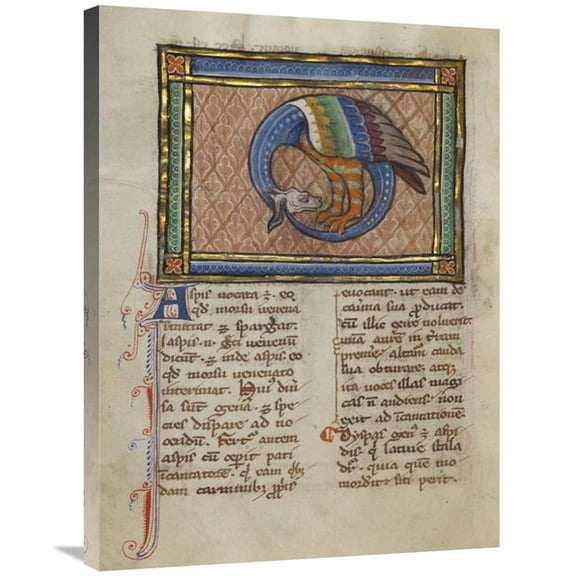 Aspis vocata ⁊ eo
qđ morsu venena
īmittat ⁊ spargat.
ias̄pis. n̄. Greci venenū
dicūt. ⁊ inde aspis. eo
qđ morsu venenato
interimat. Huiꝰ diṽsa
sa sūt genͣa. ⁊ spe
cies dispare ad no
cendū. Fert̄ autem
aspis cū cepit pati
īcantatorē. q̄ eam
dam carminibꝫ
evocant. ut eam de
cauͣna sua ꝓducat.
cū illic exire noluerit
unā aurē in t̄ram
premē. alterā cauda
sua obturare. atqꝫ
ita voces illas magi
cas n̄ audiens. non
exit ad īcantatione.
Dyspas genꝰ ⁊ aspi
dis. q̄ latine sitla
dr̄. quia quē mo
mordit ⁊ siti perit.